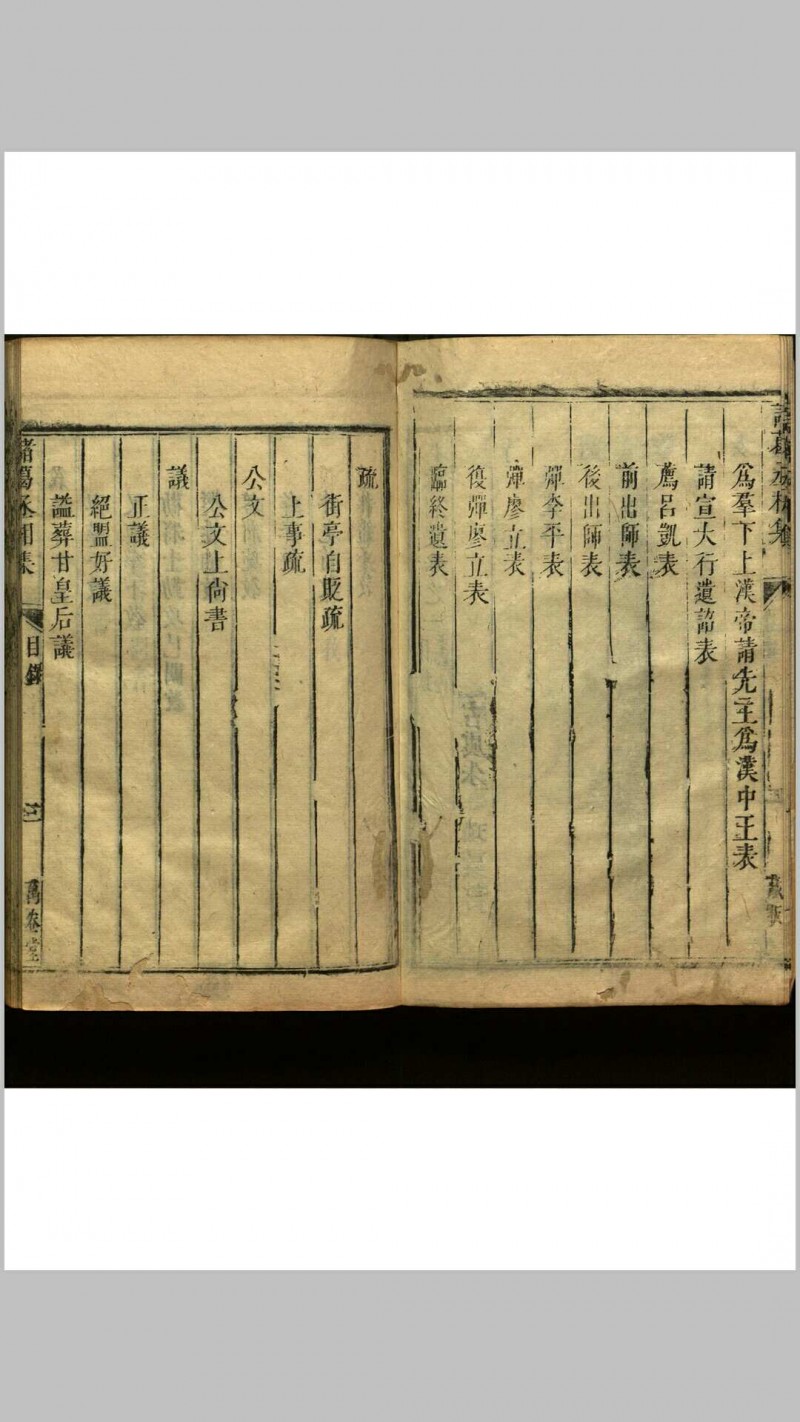 諸葛丞相集
為羣下上漢帝請先主爲漢中王表
請宣大行遺詔表
薦呂凱表
前出師表
後出師表
彈李平表
彈廖立表
復彈廖立表
臨終遺表
疏
街亭自貶疏
上事疏
公文
公文上尚書
議
正議
絕盟好議
謚葬甘皇后議
諸葛丞相集
目錄
三
萬卷堂